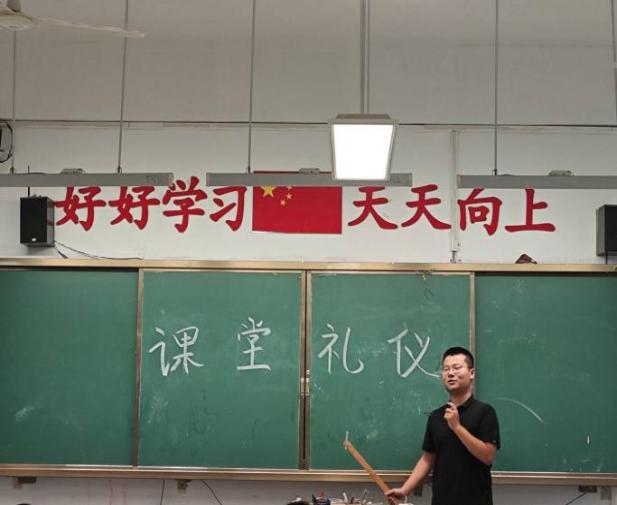 好好学习 天天向上
课堂礼仪